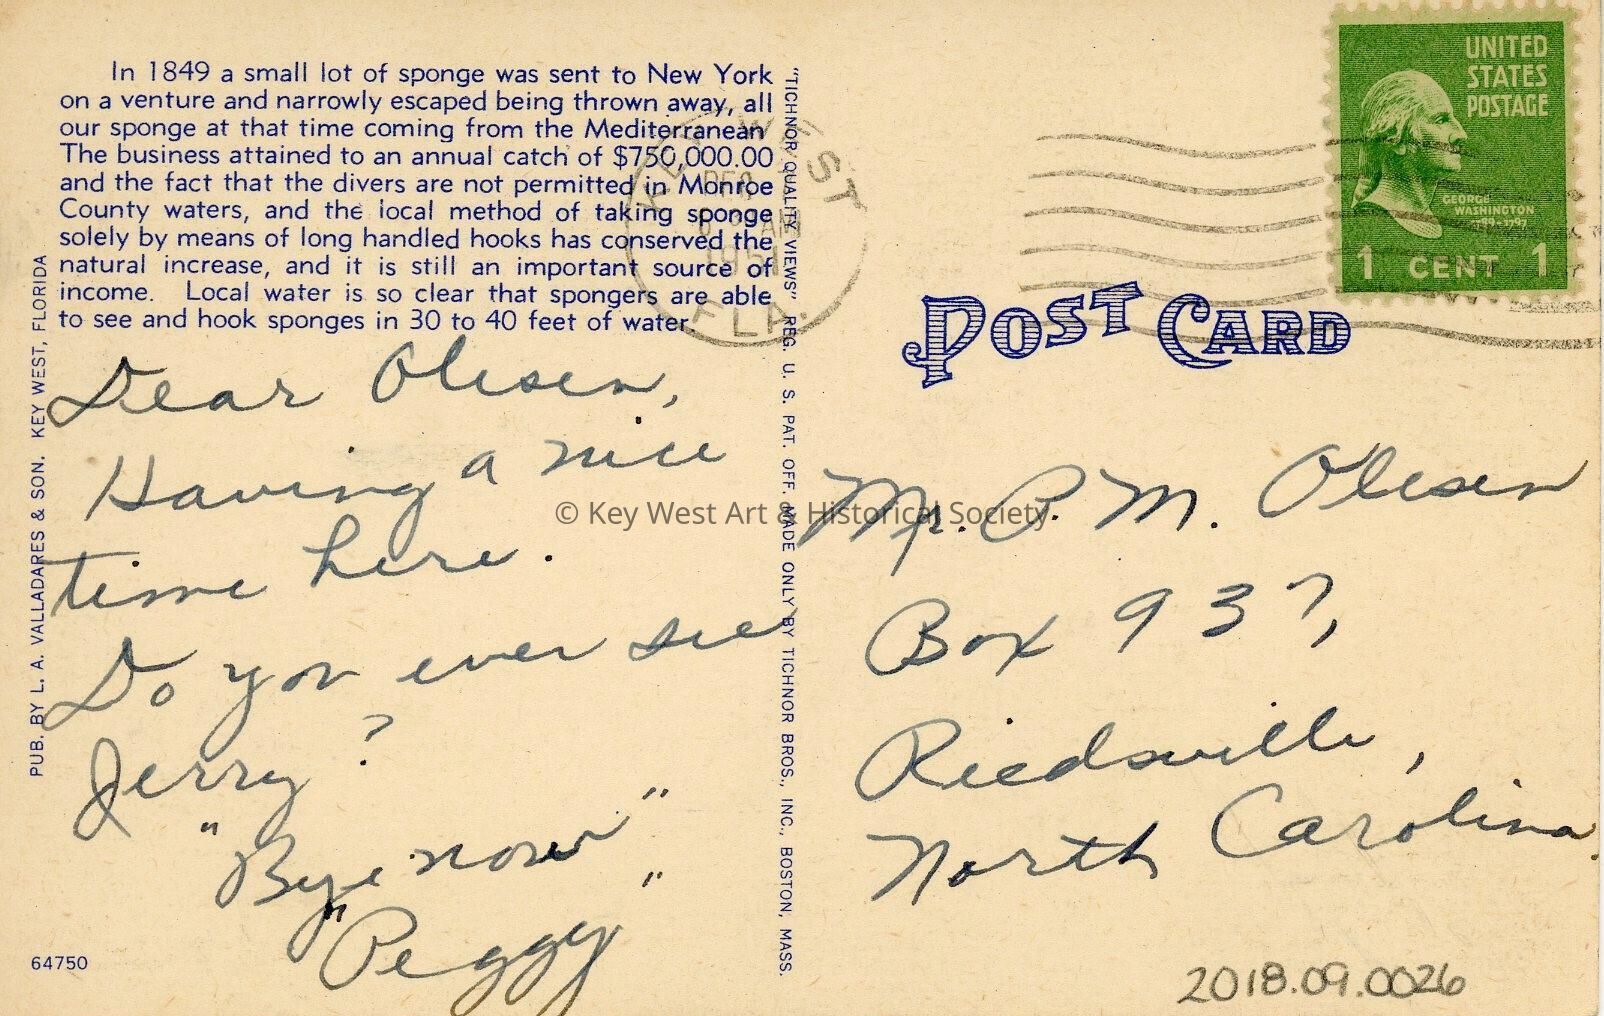 In 1849 a small lot of sponge was sent to New York
on a venture and narrowly escaped being thrown away, all
our sponge at that time coming from the Mediterranean
The business attained to an annual catch of $750,000.00
and the fact that the divers are not permitted in Monroe
County waters, and the local method of taking sponge
solely by means of long handled hooks has conserved the
natural increase, and it is still an important source of
income. Local water is so clear that spongers are able
to see and hook sponges in 30 to 40 feet of water.
Dear Olesen,
Having a nice
time here.
Do you ever see
Jerry?
"Bye now"
"Peggy"
64750
PUB. BY L. A. VALLADARES & SON. KEY WEST, FLORIDA
"TICHNOR QUALITY VIEWS" REG. U. S. PAT. OFF. MADE ONLY BY TICHNOR BROS., INC., BOSTON, MASS.
KEY WEST
AM
1951
FLA.
UNITED
STATES
POSTAGE
GEORGE
WASHINGTON
1789-1797
1 CENT 1
POST CARD
Mr. P. M. Olesen
Box 937,
Riedsville,
North Carolina.
2018.09.0026
© Key West Art & Historical Society